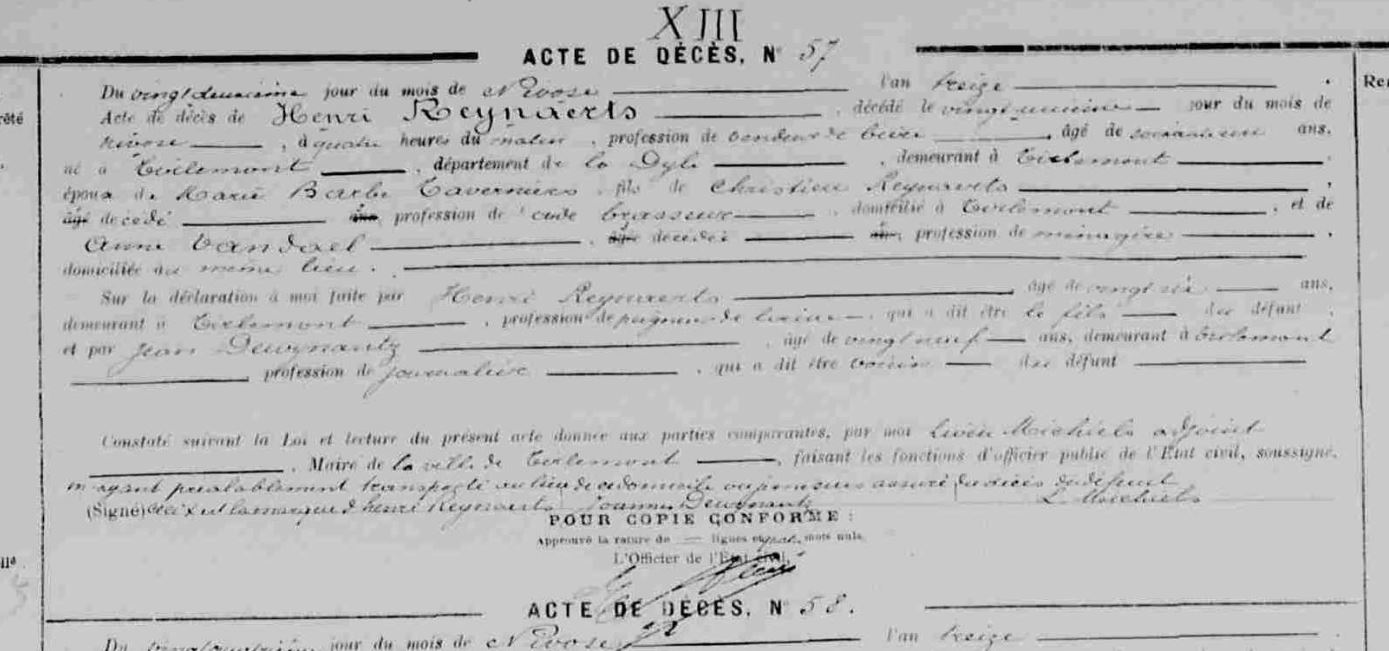 XIII
ACTE DE DÉCÈS, N° 57
Du vingtdeuxième jour du mois de Nivose l'an treize
Acte de décès de Henri Reynaerts, décédé le vingtunième jour du mois de
nivose, à quatre heures du matin, profession de vendeur de bière, âgé de soixante ans,
né à Tirlemont, département de la Dyle, demeurant à Tirlemont,
époux de Marie Barbe Taverniers, fils de Christien Reynaerts,
âgé décédé ans, profession de brasseur, domicilié à Tirlemont, et de
Anne Vandael, âgée décédée ans, profession de ménagère,
domiciliée au même lieu.
Sur la déclaration à moi faite par Henri Reynaerts âgé de vingt six ans,
demeurant à Tirlemont, profession de peigneur de laine, qui a dit être le fils du défunt,
et par Jean Dewynantz, âgé de vingt neuf ans, demeurant à Tirlemont
profession de journalier, qui a dit être voisin du défunt
Constaté suivant la Loi et lecture du présent acte donnée aux parties comparantes, par moi Livin Michiels adjoint
, Maire de la ville de Tirlemont, faisant les fonctions d'officier public de l'État civil, soussigné,
m'ayant préalablement transporté au lieu de ce domicile où je me suis assuré du décès du défunt
(Signé) ceci x est la marque d'henri Reynaerts Joannes Dewynantz L. Michiels
POUR COPIE CONFORME :
Approuvé la rature de — lignes et mots nuls.
L'Officier de l'État civil,
ACTE DE DÉCÈS, N° 58.
Du vingtquatrième jour du mois de Nivose l'an treize